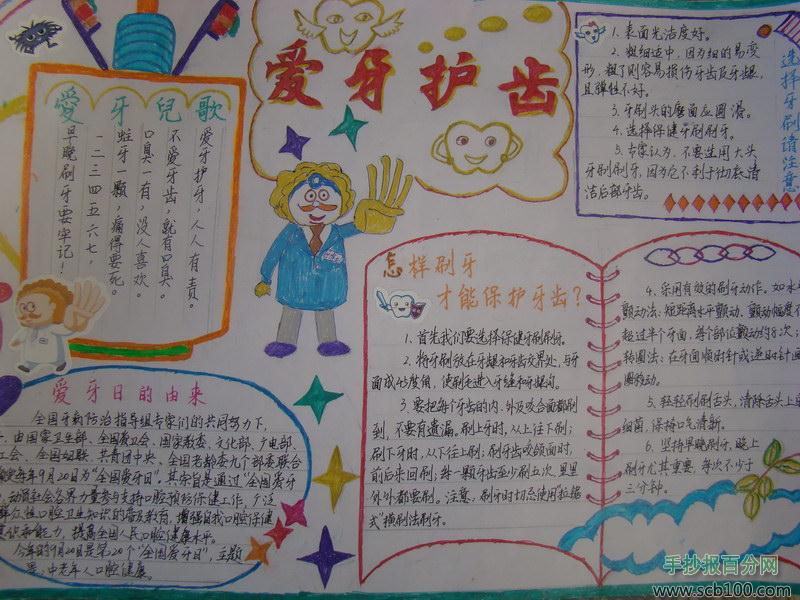 爱牙护齿
愛牙兒歌
爱牙护牙,人人有责。
不爱牙齿,就有口臭。
口臭一有,没人喜欢。
蛀牙一颗,痛得要死。
一二三四五六七,
早晚刷牙要牢记!
选择牙刷请注意
1、表面光洁度好。
2、粗细适中,因为细的易变
形,粗了则容易损伤牙齿及牙龈,
且弹性不好。
3、牙刷头的磨面应圆滑。
4、选择保健牙刷刷牙。
5、专家认为,不要选用大头
牙刷刷牙,因为它不利于彻底清
洁后部牙齿。
怎样刷牙
才能保护牙齿?
1、首先我们要选择保健牙刷刷牙。
2、将牙刷放在牙龈和牙齿交界处,与牙
面成45度角,使刷毛进入牙缝和牙龈沟。
3、要把每个牙齿的内、外及咬合面都刷
到,不要有遗漏。刷上牙时,从上往下刷;
刷下牙时,从下往上刷;刷牙齿咬颌面时,
前后来回刷;每一颗牙齿至少刷五次,里里
外外都要刷。注意,刷牙时切忌使用拉锯
式"横刷法刷牙。
4、采用有效的刷牙动作。如水平
颤动法:短距离水平颤动,颤动幅度不
超过半个牙面,每个部位颤动约8次;
转圈法:在牙面顺时针或逆时针画
圈转动。
5、轻轻刷刷舌头,清除舌头上
细菌,保持口气清新。
6、坚持早晚刷牙,晚上
刷牙尤其重要,每次不少于
三分钟。
爱牙日的由来
全国牙病防治指导组专家们的共同努力下,
由国家卫生部、全国爱卫会、国家教委、文化部、广电部、
工会、全国妇联、共青团中央、全国老龄委九个部委联合
每年9月20日为"全国爱牙日"。其宗旨是通过"全国爱牙
动员社会各界力量参与支持口腔预防保健工作,广泛
口腔卫生知识的普及教育,增强自我口腔保健
意识和能力,提高全国人民口腔健康水平。
今年的9月20日是第20个"全国爱牙日",主题
是:中老年人口腔健康。
手抄报百分网
www.scb100.com